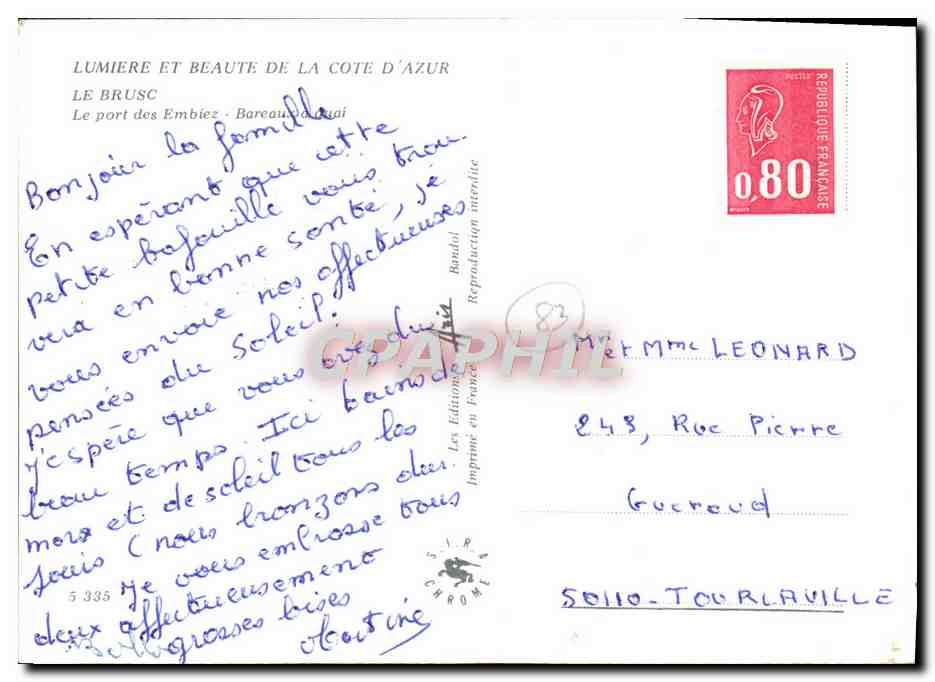 LUMIERE ET BEAUTE DE LA COTE D'AZUR
LE BRUSC
Le port des Embiez - Bareaux à quai
Bonjour la famille
En espérant que cette
petite bafouille vous trou-
vera en bonne santé, je
vous envoie nos affectueuses
pensées du Soleil!
J'espère que vous avez du
beau temps. Ici bains de
mer et de soleil tous les
jours (nous bronzons dur.
Je vous embrasse tous
deux affectueusement
grosses bises
Martine
5 335
Les Editions Bandol
Imprimé en France Reproduction interdite
S.I.R.A.
CHROME
POSTES
REPUBLIQUE FRANÇAISE
0,80
83
CPAPHIL
Mr et Mme LEONARD
243, Rue Pierre
Gueroud
50110-TOURLAVILLE